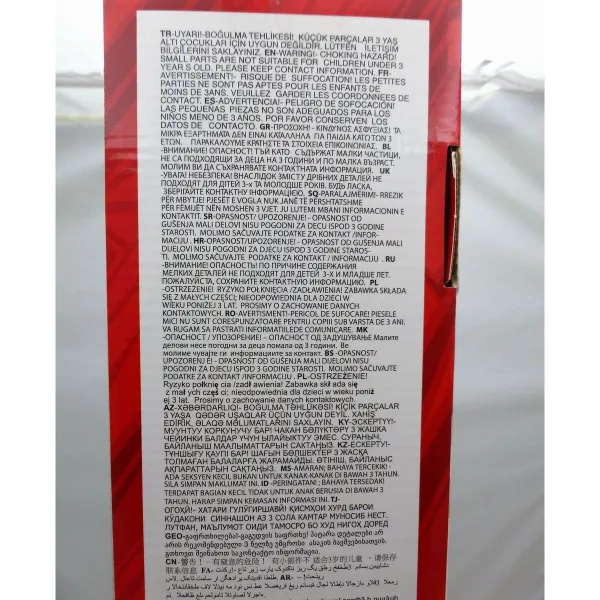 TR-UYARI!-BOĞULMA TEHLİKESİ! KÜÇÜK PARÇALAR 3 YAŞ
ALTI ÇOCUKLAR İÇİN UYGUN DEĞİLDİR. LÜTFEN İLETİŞİM
BİLGİLERİNİ SAKLAYINIZ. EN-WARING!- CHOKING HAZARD!
SMALL PARTS ARE NOT SUITABLE FOR CHILDREN UNDER 3
YEAR S OLD. PLEASE KEEP CONTACT INFORMATION. FR-
AVERTISSEMENT!- RISQUE DE SUFFOCATION! LES PETITES
PARTIES NE SONT PAS APTES POUR LES ENFANTS DE
MOINS DE 3ANS. VEUILLEZ GARDER LES COORDONNEES DE
CONTACT. ES-ADVERTENCIA!- PELIGRO DE SOFOCACIÓN!
LAS PEQUEÑAS PIEZAS NO SON ADEGUADOS PARA LOS
NIÑOS MENO DE 3 AÑOS. POR FAVOR CONSERVEN LOS
DATOS DE CONTACTO. GR-ΠΡΟΣΟΧΗ!- ΚΙΝΔΥΝΟΣ ΑΣΦΥΞΙΑΣ! ΤΑ
ΜΙΚΡΑ ΕΞΑΡΤΗΜΑΤΑ ΔΕΝ ΕΙΝΑΙ ΚΑΤΑΛΛΗΛΑ ΓΙΑ ΠΑΙΔΙΑ ΚΑΤΩ ΤΩΝ 3
ΕΤΩΝ. ΠΑΡΑΚΑΛΟΥΜΕ ΚΡΑΤΗΣΤΕ ΤΑ ΣΤΟΙΧΕΙΑ ΕΠΙΚΟΙΝΩΝΙΑΣ. BL
-ВНИМАНИЕ! ОПАСНОСТ! ТЪЙ КАТО СЪДЪРЖАТ МАЛКИ ЧАСТИЦИ,
НЕ СА ПОДХОДЯЩИ ЗА ДЕЦА НА 3 ГОДИНИ И ПО МАЛКА ВЪЗРАСТ.
МОЛИМ ВИ ДА СЪХРАНЯВАТЕ КОНТАКТНАТА ИНФОРМАЦИЯ. UK
-УВАГА! НЕБЕЗПЕКА! ВНАСЛІДОК ЗМІСТУ ДРІБНИХ ДЕТАЛЕЙ НЕ
ПОДХОДЯТ ДЛЯ ДІТЕЙ 3-х ТА МОЛОДШЕ РОКІВ. БУДЬ ЛАСКА,
ЗБЕРІГАЙТЕ КОНТАКТНУ ІНФОРМАЦІЄЮ. SQ-PARALAJMËRIM!- RREZIK
PËR MBYTJE! PJESËT E VOGLA NUK JANË TË PËRSHTATSHME
PËR FËMIJËT NËN MOSHEN 3 VJET. JU LUTEMI MBANI INFORMACIONIN E
KONTAKTIT. SR-OPASNOST/ UPOZORENJE! - OPASNOST OD
GUŠENJA MALI DELOVI NISU POGODNI ZA DECU ISPOD 3 GODINE
STAROSTI. MOLIMO SAČUVAJTE PODATKE ZA KONTAKT /INFOR-
MACIJU . HR-OPASNOST/UPOZORENJE! - OPASNOST OD GUŠENJA MALI
DIJELOVI NISU POGODNI ZA DJECU ISPOD 3 GODINE STAROS-
TI. MOLIMO SAČUVAJTE PODATKE ZA KONTAKT / INFORMACIJU . RU
-ВНИМАНИЕ! ОПАСНОСТЬ! ПО ПРИЧИНЕ СОДЕРЖАНИЯ
МЕЛКИХ ДЕТАЛЕЙ НЕ ПОДХОДЯТ ДЛЯ ДЕТЕЙ 3-Х И МЛАДШЕ ЛЕТ.
ПОЖАЛУЙСТА, СОХРАНИТЕ КОНТАКТНУЮ ИНФОРМАЦИЮ. PL
-OSTRZEŻENIE! RYZYKO POŁKNIĘCIA /ZADŁAWIENIA! ZABAWKA SKŁADA
SIĘ Z MAŁYCH CZĘŚCI; NIEODPOWIEDNIA DLA DZIECI W
WIEKU PONIŻEJ 3 LAT. PROSIMY O ZACHOWANIE DANYCH
KONTAKTOWYCH. RO-AVERTISMENT!-PERICOL DE SUFOCARE! PIESELE
MICI NU SUNT CORESPUNZATOARE PENTRU COPIII SUB VARSTA DE 3 ANI.
VA RUGAM SA PASTRATI INFORMATIILEDE COMUNICARE. MK
-ОПАСНОСТ / УПОЗОРЕНИЕ! – ОПАСНОСТ ОД ЗАДУШУВАЊЕ Малите
делови несе погодни за деца помала од 3 години. Ве
молиме чувајте ги информациите за контакт. BS -OPASNOST/
UPOZORENJ E! - OPASNOST OD GUŠENJA MALI DIJELOVI NISU
POGODNI ZA DJECU ISPOD 3 GODINE STAROSTI. MOLIMO SAČUVAJTE
PODATKE ZA KONTAKT /INFORMACIJU . PL-OSTRZEŻENIE!
Ryzyko połknię cia /zadł awienia! Zabawka skł ada się
z mał ych częś ci; nieodpowiednia dla dzieci w wieku poniż
ej 3 lat. Prosimy o zachowanie danych kontaktowych.
AZ-XƏBƏRDARLIQ!- BOĞULMA TƏHLÜKƏSİ! KİÇİK PARÇALAR
3 YAŞA QƏDƏR UŞAQLAR ÜÇÜN UYGUN DEYİL. XAHİŞ
EDİRİK, ƏLAQƏ MƏLUMATLARINI SAXLAYIN. KY-ЭСКЕРТҮҮ!-
МУУНТУУ КОРКУНУЧУ БАР! ЧАКАН БӨЛҮКТӨРҮ 3 ЖАШКА
ЧЕЙИНКИ БАЛДАР ҮЧҮН ЫЛАЙЫКТУУ ЭМЕС. СУРАНЫЧ,
БАЙЛАНЫШ МААЛЫМАТТАРЫН САКТАҢЫЗ. KZ-ЕСКЕРТУ!-
ТҰНШЫҒУ ҚАУПІ БАР! ШАҒЫН БӨЛШЕКТЕР 3 ЖАСҚА
ТОЛМАҒАН БАЛАЛАРҒА ЖАРАМАЙДЫ. ӨТІНІШ, БАЙЛАНЫС
АҚПАРАТТАРЫН САҚТАҢЫЗ. MS-AMARAN; BAHAYA TERCEKIK! -
ADA SEKSYEN KECIL BUKAN UNTUK KANAK-KANAK DI BAWAH 3 TAHUN.
SILA SIMPAN MAKLUMAT INI. ID -PERINGATAN! ; BAHAYA TERSEDAK!
TERDAPAT BAGIAN KECIL TIDAK UNTUK ANAK BERUSIA DI BAWAH 3
TAHUN, HARAP SIMPAN KEMASAN INFORMASI INI. TJ-
ОГОҲӢ! - ХАТАРИ ГУЛӮГИРШАВӢ! ҚИСМҲОИ ХУРД БАРОИ
КӮДАКОНИ СИННАШОН АЗ 3 СОЛА КАМТАР МУНОСИБ НЕСТ.
ЛУТФАН, МАЪЛУМОТ ОИДИ ТАМОСРО БО ХУД НИГОҲ ДОРЕД
GEO-გაფრთხილება!-გაგუდვის საფრთხე! პატარა დეტალები არ
არის რეკომენდებული 3 წელზე უმცროსი ასაკის ბავშვებისათვის.
გთხოვთ შეინახოთ საკონტაქტო ინფორმაცია.
CN-警告！- 有窒息的危险！ 有小部件不 适合3岁的儿童 . 请保存
联系信息 FA-
AR-